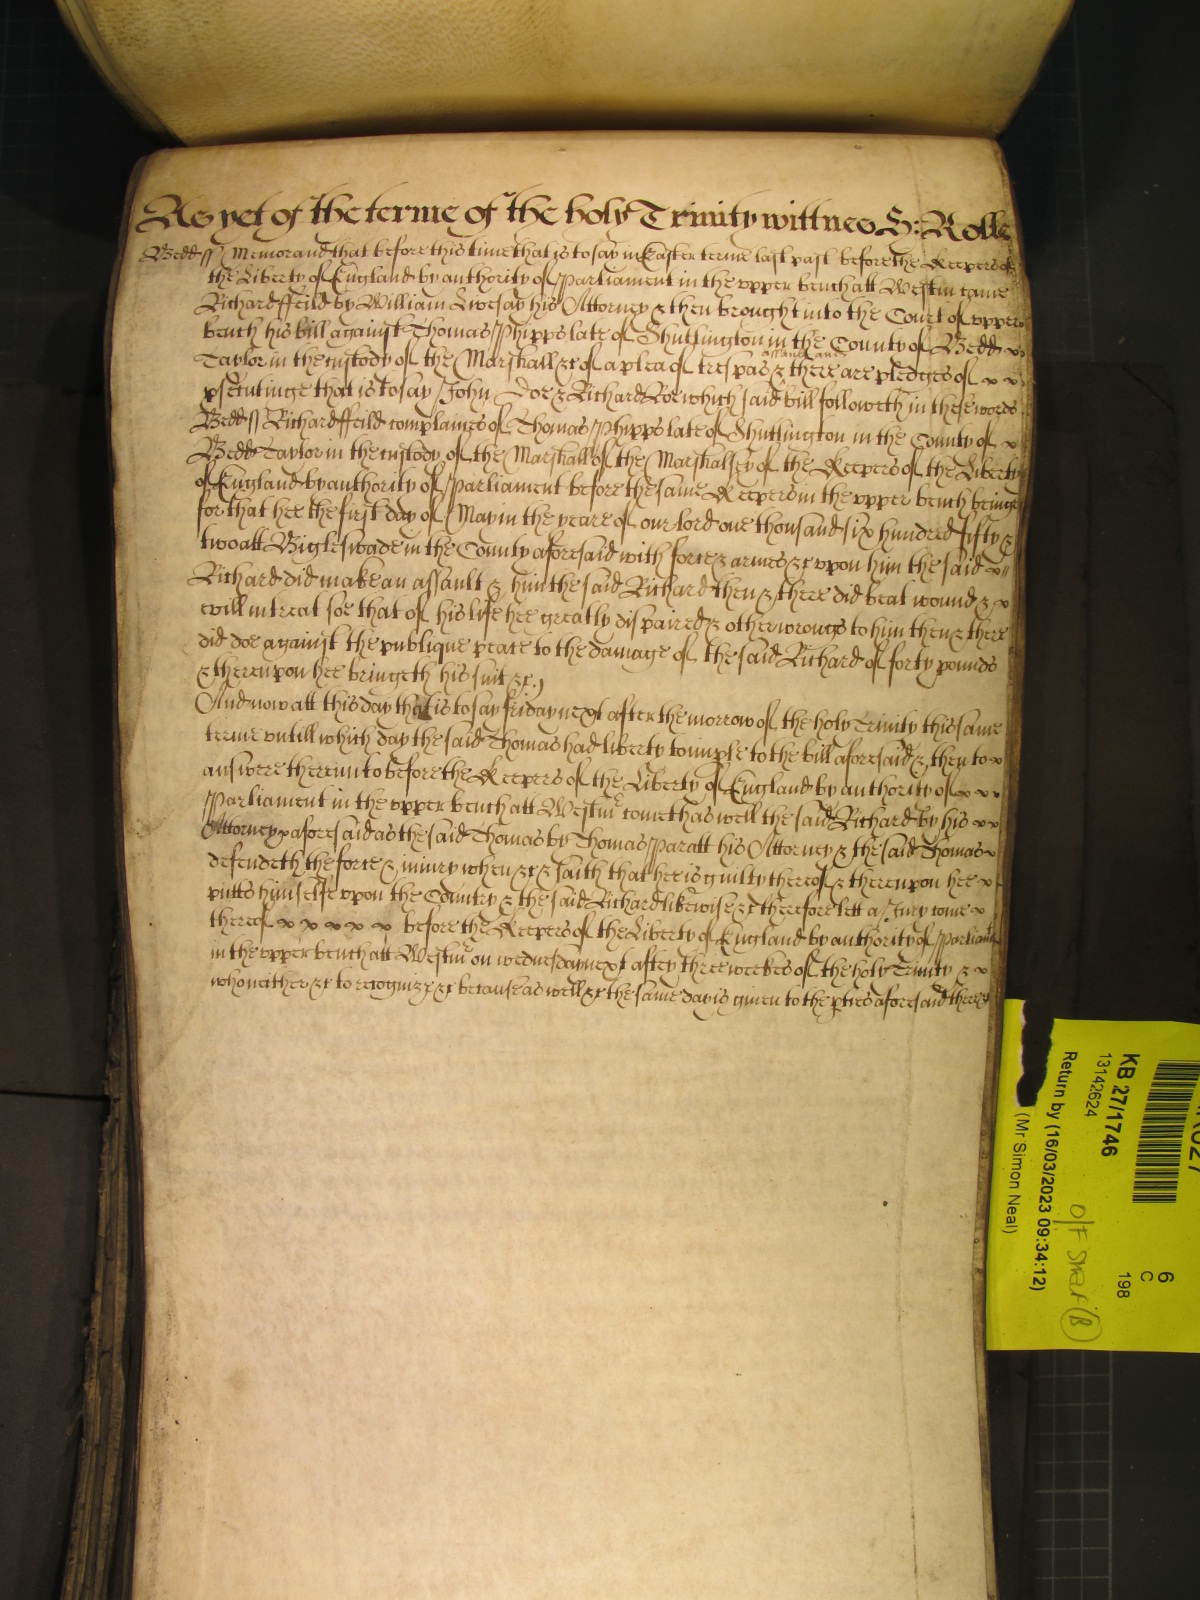 As yet of the terme of the holy Trinity wittnes H: Rolle
Bedd ss Memorand that before this time that is to say in Easter terme last past before the Keepers of
the Liberty of England by authority of Parliament in the upper bench att Westm came
Richard ffeild by William Livesay his Attorney & then brought into the Court of upper
bench his bill against Thomas Phipps late of Shutlington in the County of Bedd
Taylor in the custody of the Marshall &c of a plea of trespas & there are pledges of
assault and
psecutinge that is to say John Doe & Richard Roe which said bill followeth in these words
Bedd ss Richard ffeild complaines of Thomas Phipps late of Shutlington in the County of
Bedd Taylor in the custody of the Marshall of the Marshallsey of the Keepers of the Liberty
of England by authority of Parliament before the same Keepers in the upper bench beinge
for that hee the first day of May in the yeare of our lord one thousand six hundred fifty &
two att Bigleswade in the County aforesaid with force & armes &c upon him the said
Richard did make an assault & him the said Richard then & there did beat wound &
evill intreat soe that of his life hee greatly dispaired & other wrongs to him then & there
did doe against the publique peace to the damage of the said Richard of forty pounds
& thereupon hee bringeth his suit &c.
And now att this day that is to say friday next after the morrow of the holy Trinity this same
terme untill which day the said Thomas had liberty to imple to the bill aforesaid & then to
answere thereunto before the Keepers of the Liberty of England by authority of
Parliament in the upper bench att Westmr cometh as well the said Richard by his
Attorney aforesaid as the said Thomas by Thomas Paratt his Attorney & the said Thomas
defendeth the force & iniury when &c & saith that hee is guilty thereof & thereupon hee
putts himselfe upon the Country & the said Richard likewise &c therefore lett a Jury come
thereof x x x x x before the Keepers of the Liberty of England by authority of Parliamt
in the upper bench att Westmr on wednesday next after three weekes of the holy Trinity &
who neither &c to recogniz &c because as well &c the same day is given to the pties aforesaid there &c
KB 27/1746
13142624
Return by (16/03/2023 09:34:12)
(Mr Simon Neal)
6
C
198